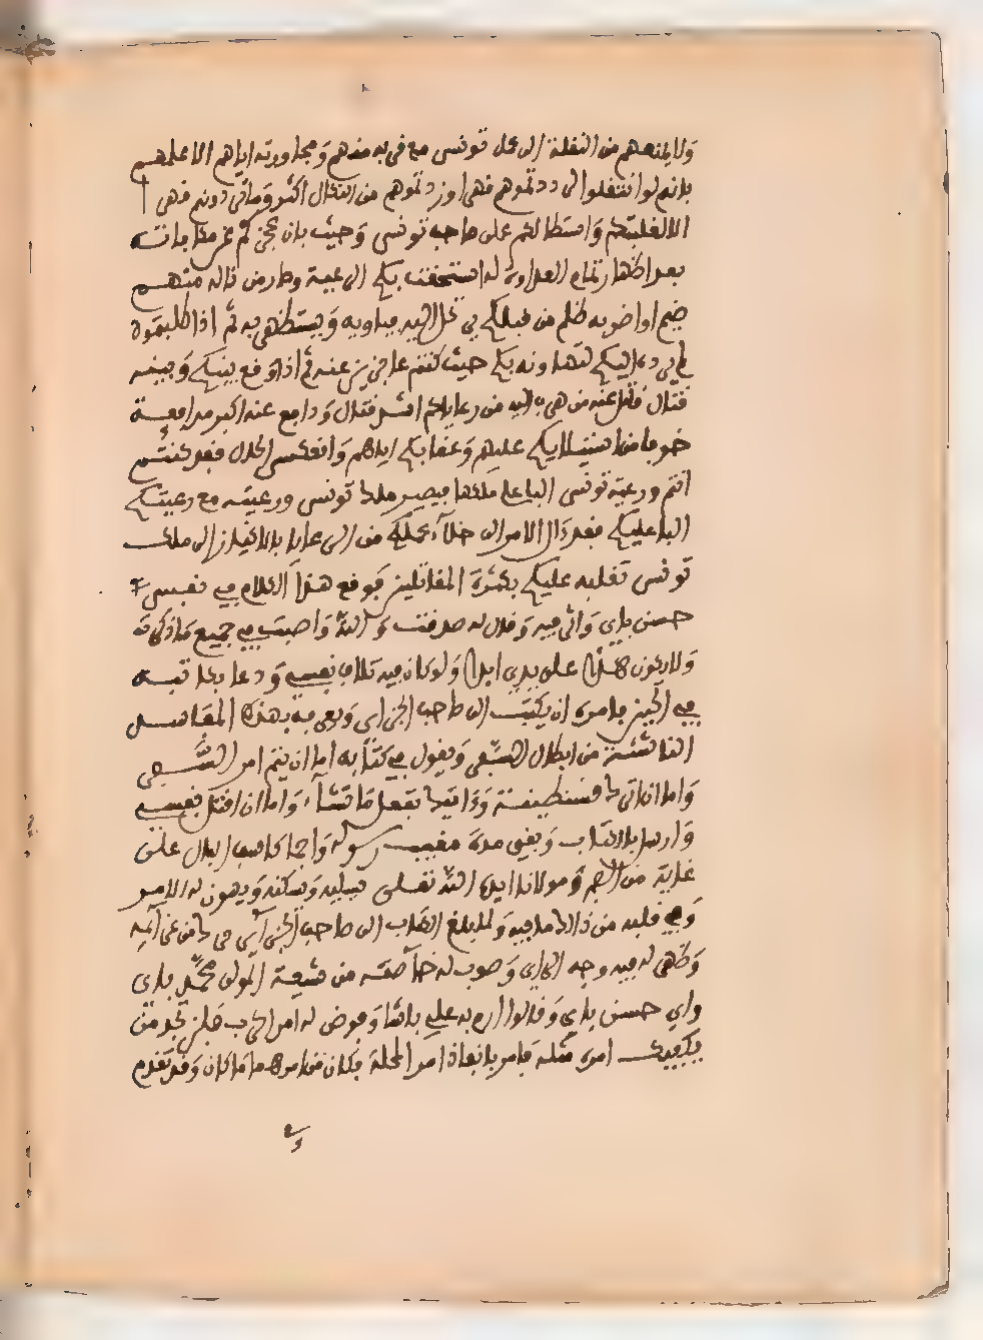 ولا يمنعهم من النقلة الى عمل تونس مع قربه منهم ومجاورته اياهم الا علمهم
بانهم لو انتقلوا لرددتموهم قهرا وزدتموهم من النكال اكثر وما تردونهم قهرا
الا لغلبتكم واستطالتكم على صاحب تونس وحيث بان عجزكم عن مقاومته
بعد اظهار تمام العداوة له استخفت بكم الرعية وصار من ناله منهم
ضيم او اضر به ظلم من قبلكم يرتحل اليه فياويه ويستظهر به ثم اذا طلبتموه
لم يرده اليكم لتهاونه بكم حيث كنتم عاجزين عنه ثم اذا وقع بينكم وبينه
قتال قاتل عنه من هرب اليه من رعاياكم اشد قتال ودافع عنه اكبر مدافعة
خوفا من استيلائكم عليهم وعقابكم اياهم وانعكس الحال فبعد كنتم
انتم ورعية تونس البا على ملكها فيصير ملك تونس ورعيته مع رعيتكم
البا عليكم فبعد ءال الامر الى خلاء عملكم من الرعايا بالانحياز الى ملك
تونس تغلبه عليكم بكثرة المقاتلين فوقع هذا الكلام في نفس
حسن باي واثر فيه وقال له صدقت والله واصبت في جميع ما ذكرته
ولا يكون هذا على يدي ابدا ولو كان فيه تلاف نفسي ودعا بكاتبه
في الحين فامره ان يكتب الى صاحب الجزاير ويعرفه بهذه المفاسد
الناشئة من ابطال السفر ويقول في كتابه اما ان يتم امر السفر
واما ان اترك قسنطينة وءاتيك تفعل ما تشاء واما ان اقتل نفسي
وارسل بالكتاب وبقي مدة مغيب رسوله واجما كاسف البال على
غاية من الضجر ومولانا ايده الله تعلى يسليه ويسكنه ويهون له الامر
وفي قلبه من ذالك ما فيه ولما بلغ الكتاب الى صاحب الجزاير حرك من عزائمه
وظهر له فيه وجه الراي وصوب له خاصته من شيعة المولى محمد باي
راي حسن باي وقالوا ارم به علي باشا وفوض له امر الحرب فلن تجد من
يكفيك امره مثله فامر بانفاذ امر المحلة فكان من امرها ما كان وقد تقدم